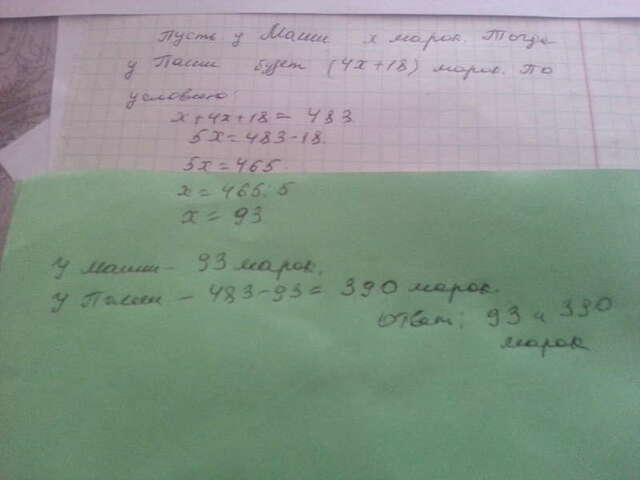 Пусть у Маши x марок. Тогда
у Паши будет (4x+18) марок. По
условию:
x+4x+18=483
5x=483-18.
5x=465.
x=465:5
x=93
У Маши - 93 марок.
У Паши - 483-93=390 марок.
Ответ: 93 и 390
марок